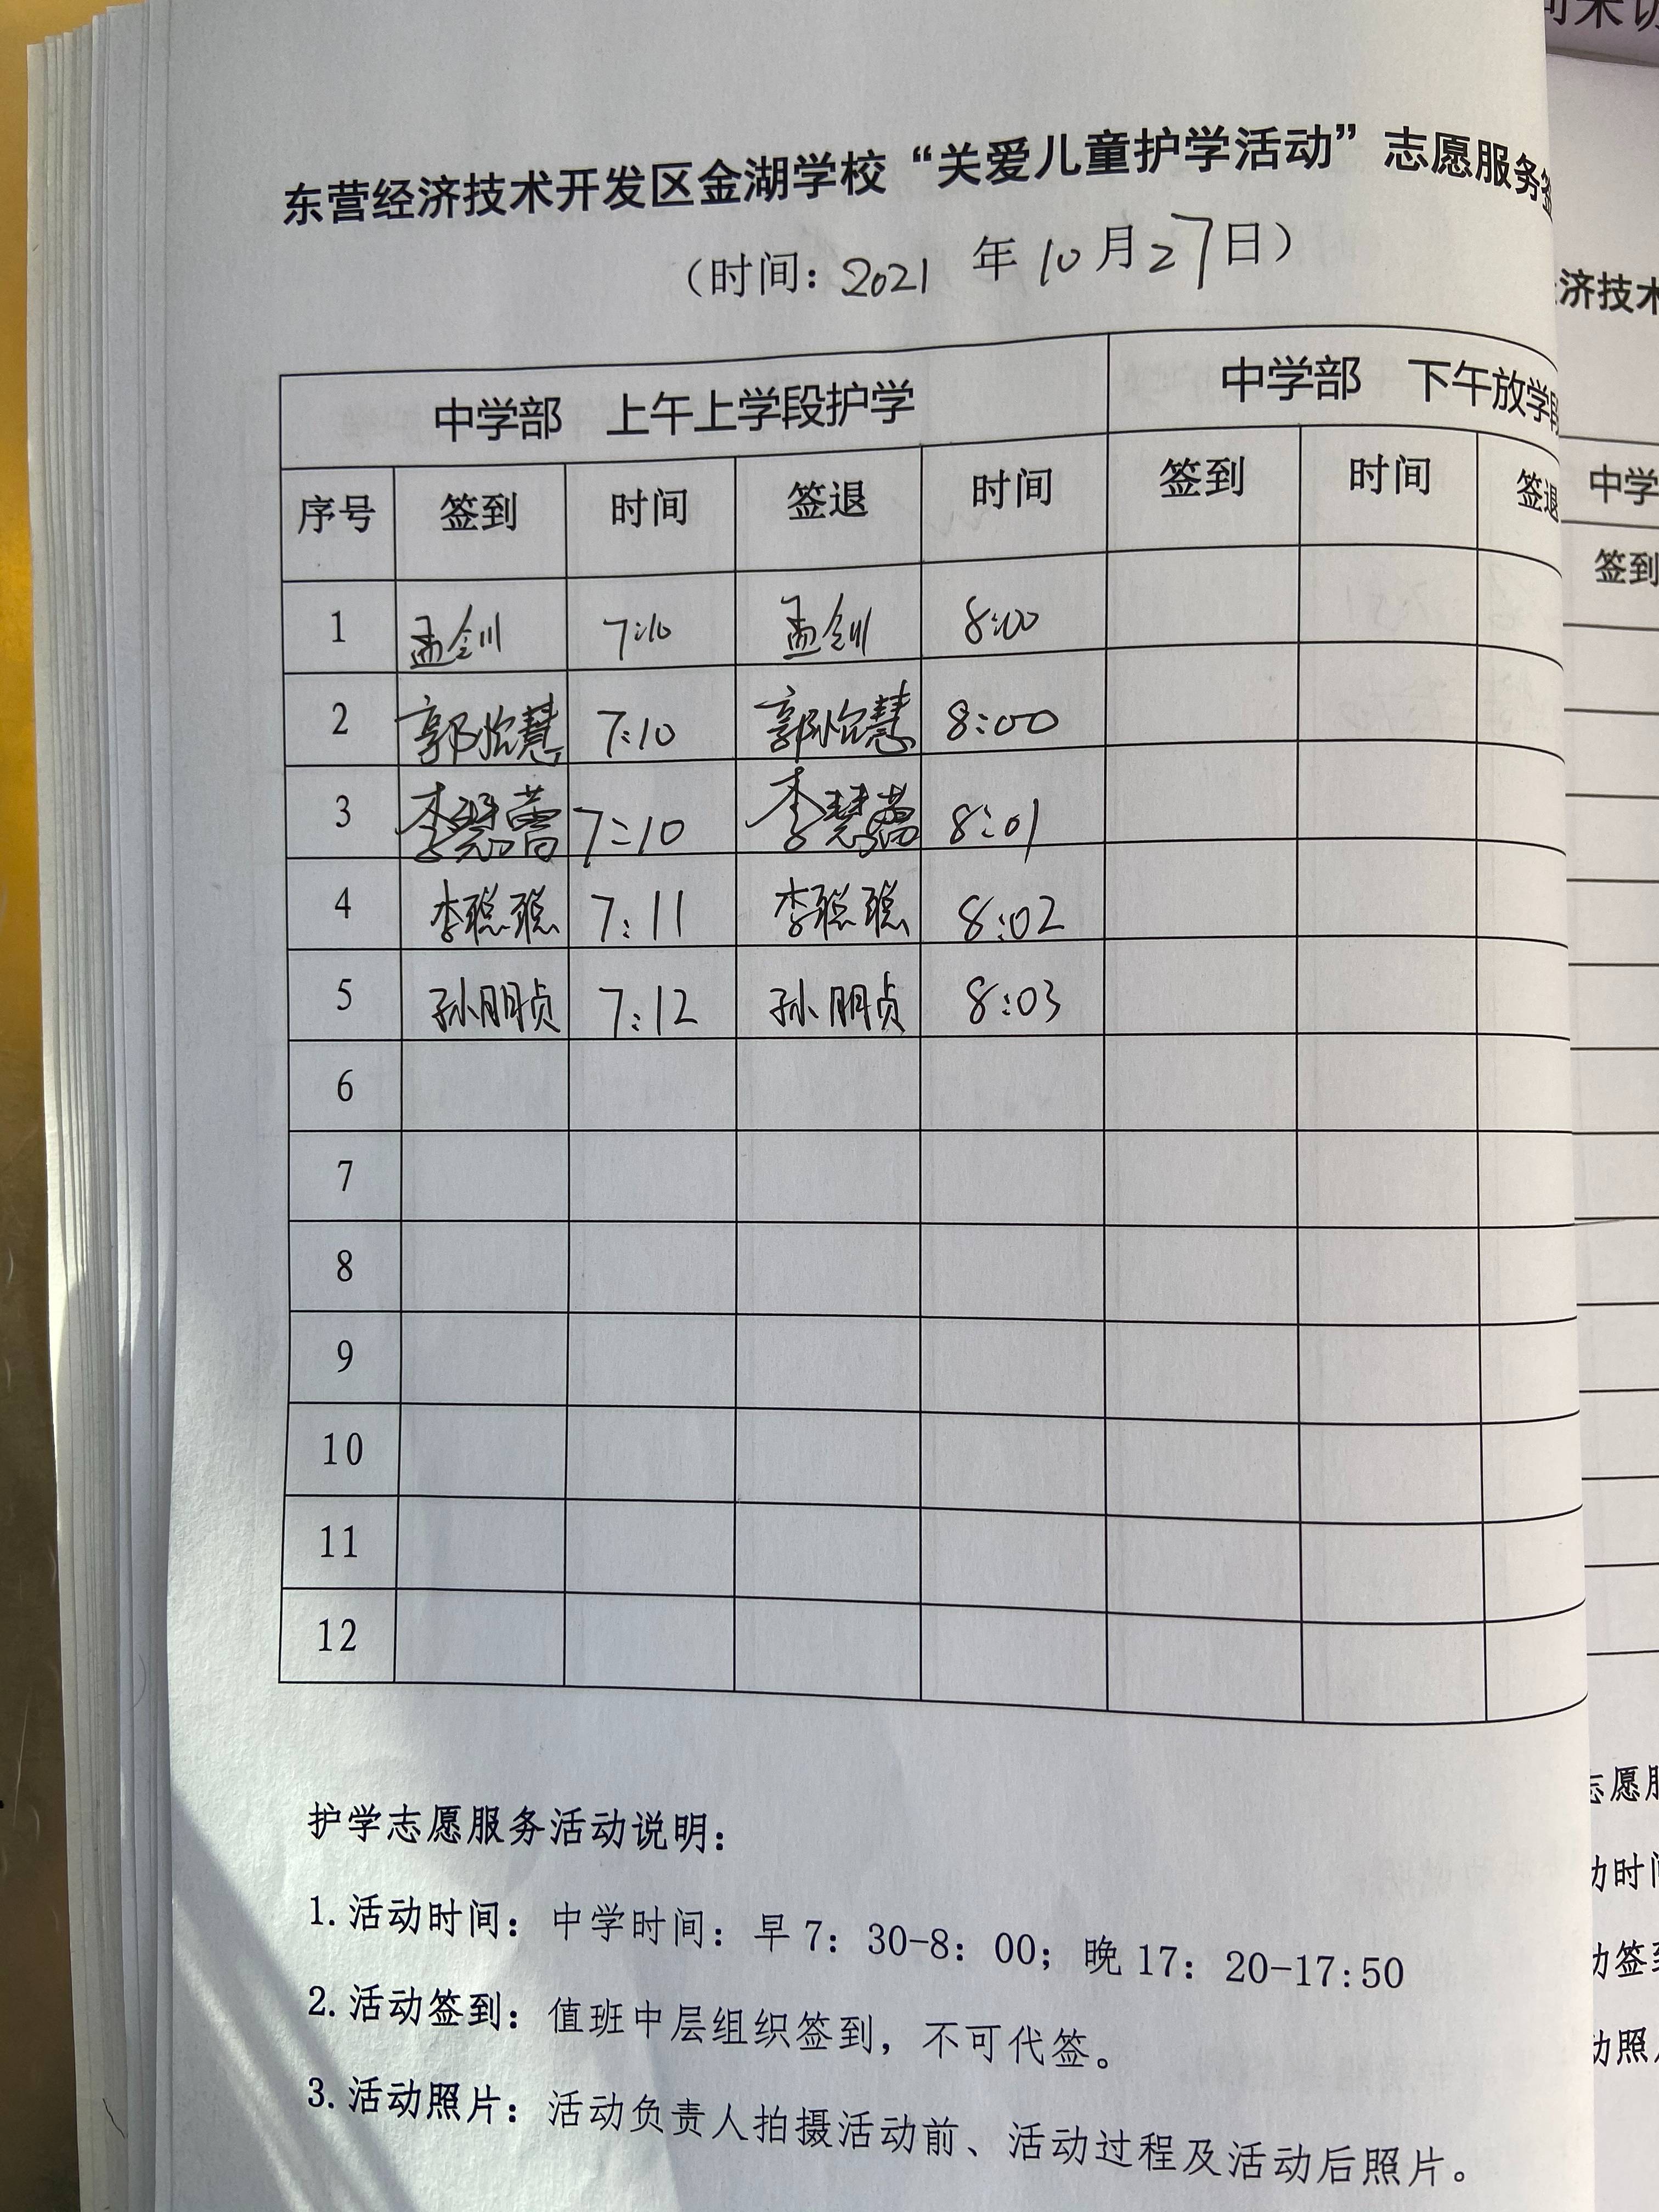 东营经济技术开发区金湖学校“关爱儿童护学活动”志愿服务签
（时间：2021 年 10 月 27 日）
中学部 上午上学段护学 中学部 下午放学段
序号 签到 时间 签退 时间 签到 时间 签退
1 孟钊 7:10 孟钊 8:00
2 郭怡慧 7:10 郭怡慧 8:00
3 李慧蕾 7:10 李慧蕾 8:01
4 李聪聪 7:11 李聪聪 8:02
5 孙朋贞 7:12 孙朋贞 8:03
6
7
8
9
10
11
12
护学志愿服务活动说明：
1.活动时间：中学时间：早 7：30-8：00；晚 17：20-17:50
2.活动签到：值班中层组织签到，不可代签。
3.活动照片：活动负责人拍摄活动前、活动过程及活动后照片。
济技术
中学
签到
志愿服
动时间
动签到
动照片